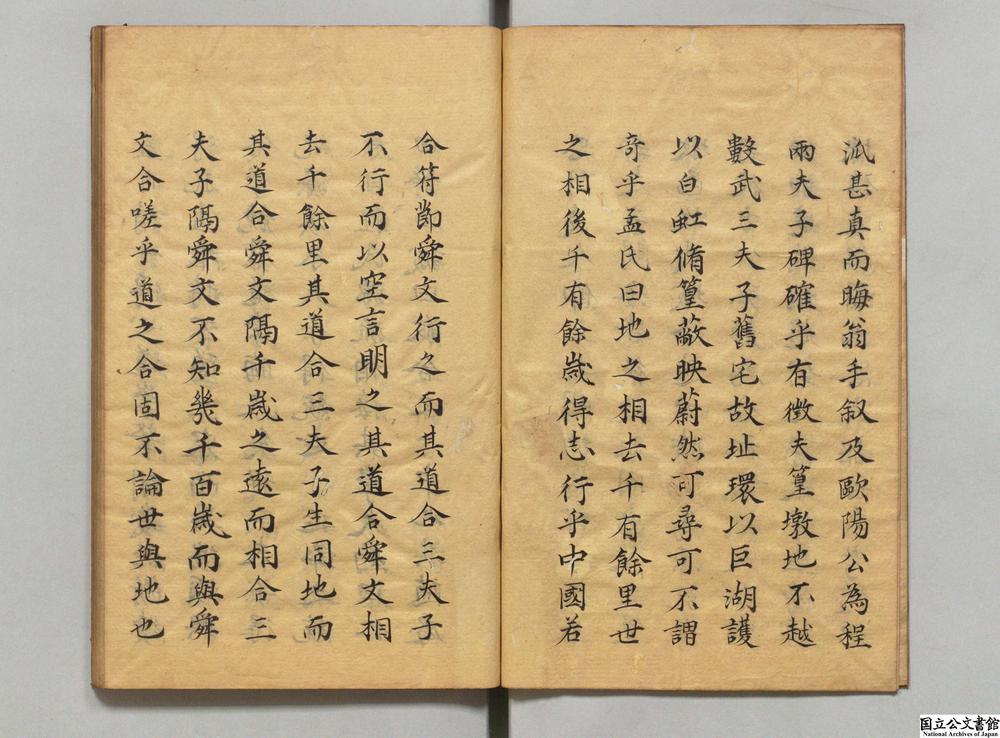 派甚真而晦翁手叙及歐陽公為程
兩夫子碑確乎有徴夫篁墩地不越
數武三夫子舊宅故址環以巨湖護
以白虹脩篁蔽映蔚然可尋可不謂
奇乎孟氏曰地之相去千有餘里世
之相後千有餘歲得志行乎中國若
合符節舜文行之而其道合三夫子
不行而以空言明之其道合舜文相
去千餘里其道合三夫子生同地而
其道合舜文隔千歲之遠而相合三
夫子隔舜文不知幾千百歲而與舜
文合嗟乎道之合固不論世與地也
国立公文書館
National Archives of Japan